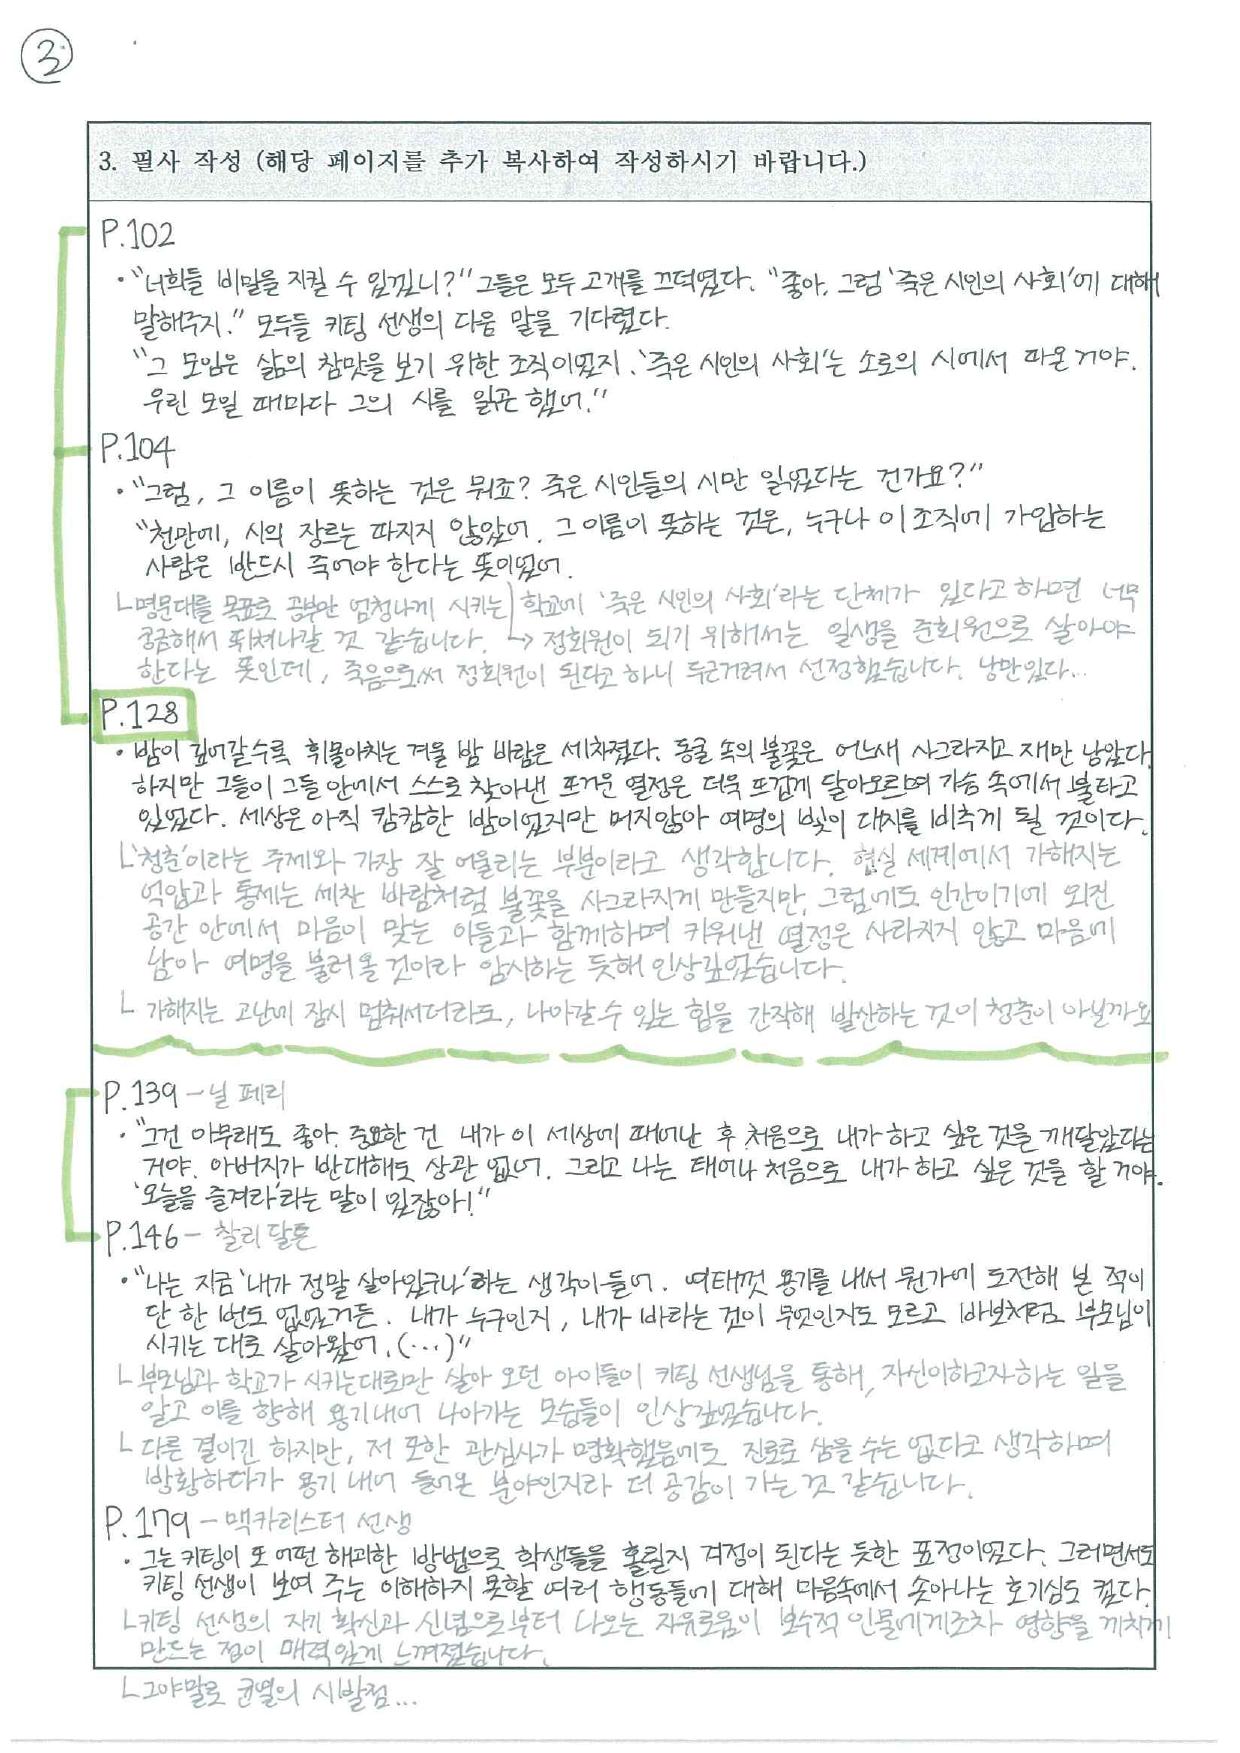 3
3. 필사 작성 (해당 페이지를 추가 복사하여 작성하시기 바랍니다.)
P.102
• "너희들 비밀을 지킬 수 있겠니?" 그들은 모두 고개를 끄덕였다. "좋아. 그럼 '죽은 시인의 사회'에 대해
말해주지." 모두들 키팅 선생의 다음 말을 기다렸다.
"그 모임은 삶의 참맛을 보기 위한 조직이었지. '죽은 시인의 사회'는 소로의 시에서 따온 거야.
우린 모일 때마다 그의 시를 읽곤 했어."
P.104
• "그럼, 그 이름이 뜻하는 것은 뭐죠? 죽은 시인들의 시만 읽었다는 건가요?"
"천만에, 시의 장르는 따지지 않았어. 그 이름이 뜻하는 것은, 누구나 이 조직에 가입하는
사람은 반드시 죽어야 한다는 뜻이었어.
ㄴ명문대를 목표로 공부만 엄청나게 시키는 학교에 '죽은 시인의 사회'라는 단체가 있다고 하면 너무
궁금해서 뛰쳐나갈 것 같습니다. → 정회원이 되기 위해서는 일생을 준회원으로 살아야
한다는 뜻인데, 죽음으로써 정회원이 된다고 하니 두근거려서 선정했습니다. 낭만있다...
P.128
• 밤이 깊어갈수록 휘몰아치는 겨울 밤 바람은 세차졌다. 동굴 속의 불꽃은 어느새 사그라지고 재만 남았다.
하지만 그들이 그들 안에서 스스로 찾아낸 뜨거운 열정은 더욱 뜨겁게 달아오르며 가슴 속에서 불타고
있었다. 세상은 아직 캄캄한 밤이었지만 머지않아 여명의 빛이 대지를 비추게 될 것이다.
ㄴ'청춘'이라는 주제와 가장 잘 어울리는 부분이라고 생각합니다. 현실 세계에서 가해지는
억압과 통제는 세찬 바람처럼 불꽃을 사그라지게 만들지만, 그럼에도 인간이기에 외진
공간 안에서 마음이 맞는 이들과 함께하며 키워낸 열정은 사라지지 않고 마음에
남아 여명을 불러올 것이라 암시하는 듯해 인상깊었습니다.
ㄴ 가해지는 고난에 잠시 멈춰서더라도, 나아갈 수 있는 힘을 간직해 발산하는 것이 청춘이 아닐까요
P.139 - 닐 페리
• "그건 아무래도 좋아. 중요한 건 내가 이 세상에 태어난 후 처음으로 내가 하고 싶은 것을 깨달았다는
거야. 아버지가 반대해도 상관 없어. 그리고 나는 태어나 처음으로 내가 하고 싶은 것을 할 거야.
'오늘을 즐겨라'라는 말이 있잖아!"
P.146 - 찰리 달튼
• "나는 지금 '내가 정말 살아있구나' 하는 생각이 들어. 여태껏 용기를 내서 뭔가에 도전해 본 적이
단 한 번도 없었거든. 내가 누구인지, 내가 바라는 것이 무엇인지도 모르고 바보처럼 부모님이
시키는 대로 살아왔어.(…)"
ㄴ부모님과 학교가 시키는대로만 살아 오던 아이들이 키팅 선생님을 통해, 자신이하고자하는 일을
알고 이를 향해 용기내어 나아가는 모습들이 인상깊었습니다.
ㄴ 다른 결이긴 하지만, 저 또한 관심사가 명확했음에도 진로로 삼을 수는 없다고 생각하며
방황하다가 용기 내어 들어온 분야인지라 더 공감이 가는 것 같습니다.
P.179 - 맥카리스터 선생
• 그는 키팅이 또 어떤 해괴한 방법으로 학생들을 홀릴지 걱정이 된다는 듯한 표정이었다. 그러면서도
키팅 선생이 보여 주는 이해하지 못할 여러 행동들에 대해 마음속에서 솟아나는 호기심도 컸다.
ㄴ키팅 선생의 자기 확신과 신념으로부터 나오는 자유로움이 보수적 인물에게조차 영향을 끼치게
만드는 점이 매력있게 느껴졌습니다.
ㄴ그야말로 균열의 시발점...